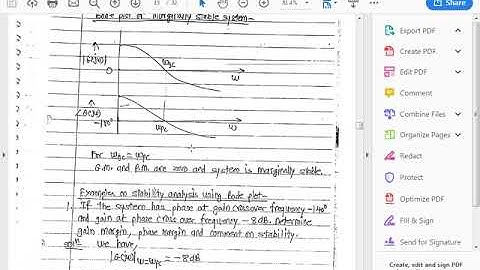 13
81.4%
Share
Bode plot of marginally stable system-
|G(jω)|
0
ωgc
ω
∠G(jω)
-180°
ωpc
ω
For ωgc = ωpc
G.M. and P.M. are zero and system is marginally stable.
Examples on stability analysis using Bode plot-
1. If the system has phase at gain crossover frequency -140°
and gain at phase cross over frequency -8dB. Determine
gain margin, phase margin and comment on stability.
We have,
|G(jω)|ω=ωpc = -8dB
Export PDF
Create PDF
Edit PDF
Comment
Combine Files
Organize Pages
Redact
Protect
Optimize PDF
Fill & Sign
Send for Signature
Create, edit and sign PDF